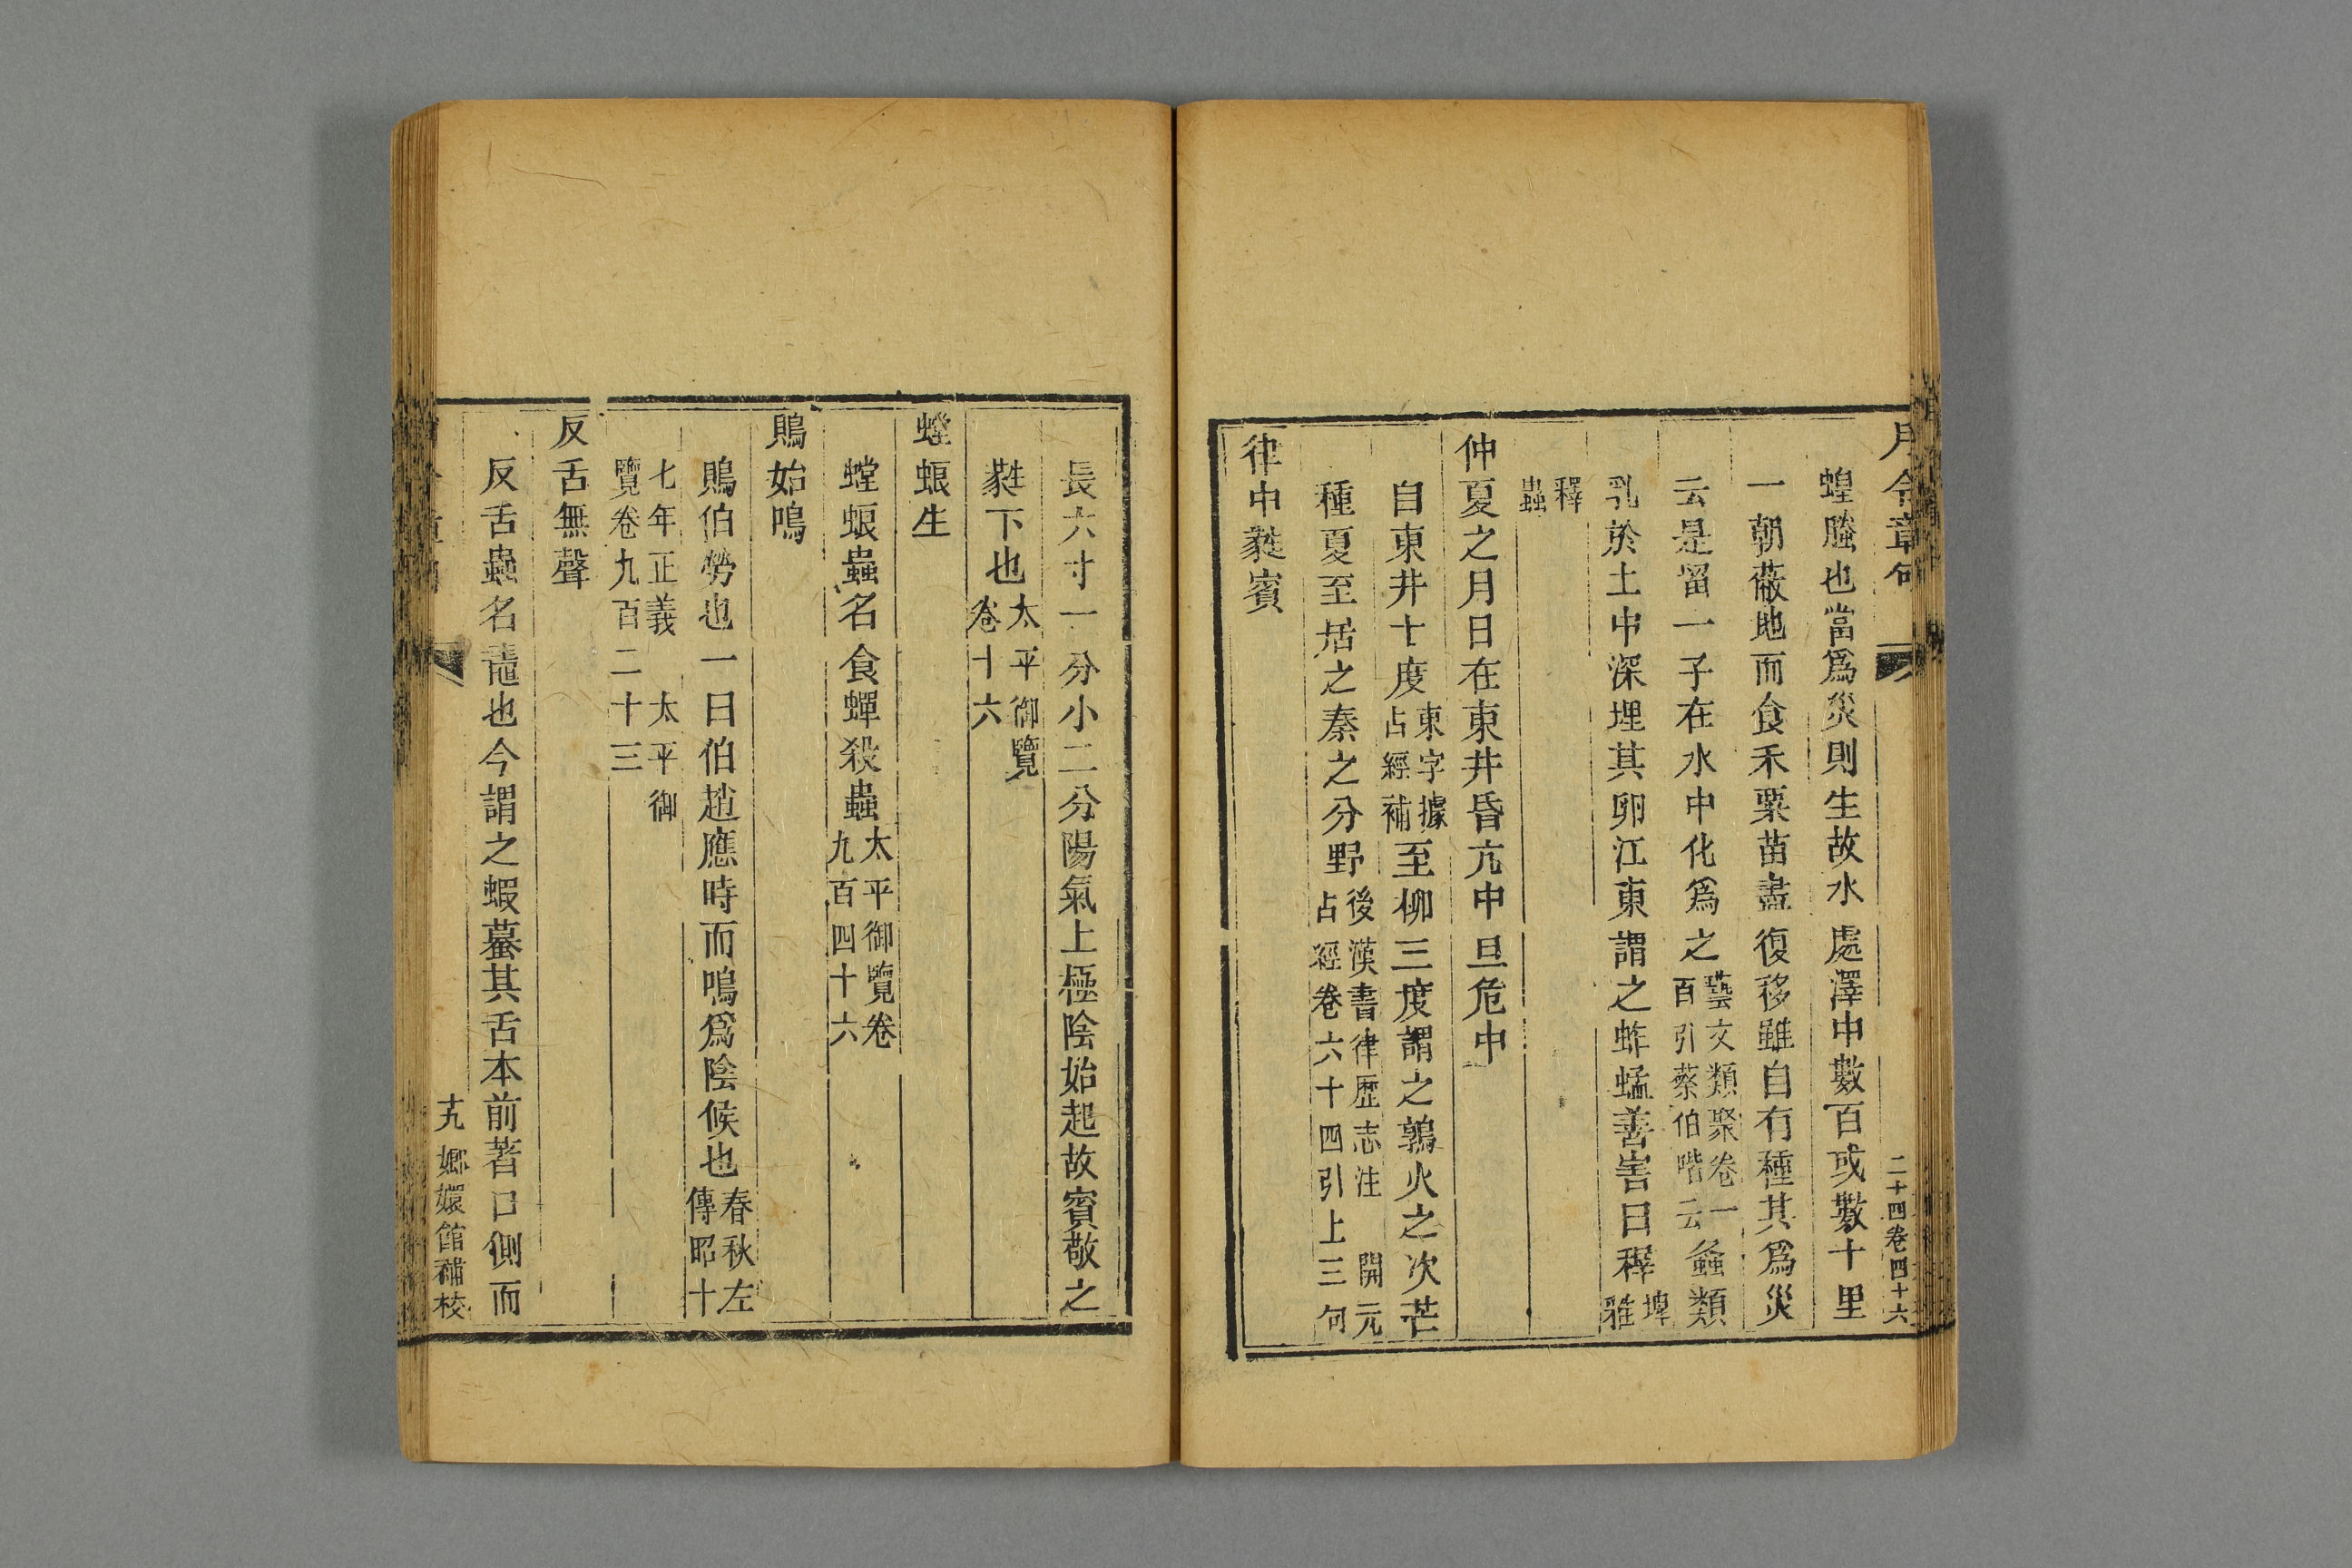 月令章句 二十四卷四十六
蝗螣也當爲災則生故水處澤中數百或數十里
一朝蔽地而食禾粟苗盡復移雖自有種其爲災
云是畱一子在水中化爲之藝文類聚卷一百引蔡伯喈云螽類
乳於土中深埋其卵江東謂之蚱蜢善害曰稺埤雅
釋蟲
仲夏之月日在東井昏亢中旦危中
自東井十度東字據占經補至柳三度謂之鶉火之次芒
種夏至居之秦之分野後漢書律歷志注開元占經卷六十四引上三句
律中蕤賓
長六寸一分小二分陽氣上極陰始起故賓敬之
蕤下也太平御覽卷十六
螳蜋生
螳蜋蟲名食蟬殺蟲太平御覽卷九百四十六
鵙始鳴
鵙伯勞也一曰伯趙應時而鳴爲陰候也春秋左傳昭十
七年正義 太平御覽卷九百二十三
反舌無聲
反舌蟲名鼃也今謂之蝦蟇其舌本前著口側而
十九 嫏嬛館補校